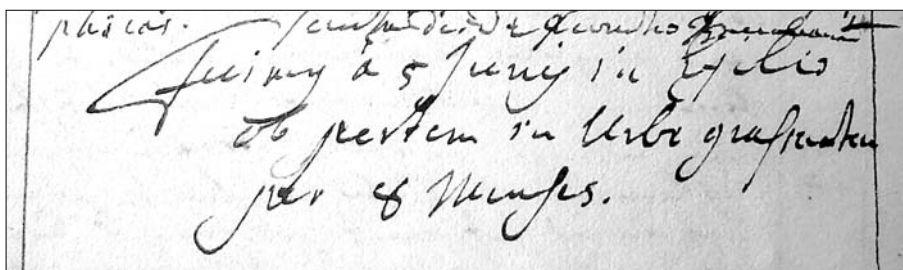 phicos.
Fuimus à 5 Junij in Exilio
ob pestem in Urbe grassantem
per 8 Menses.